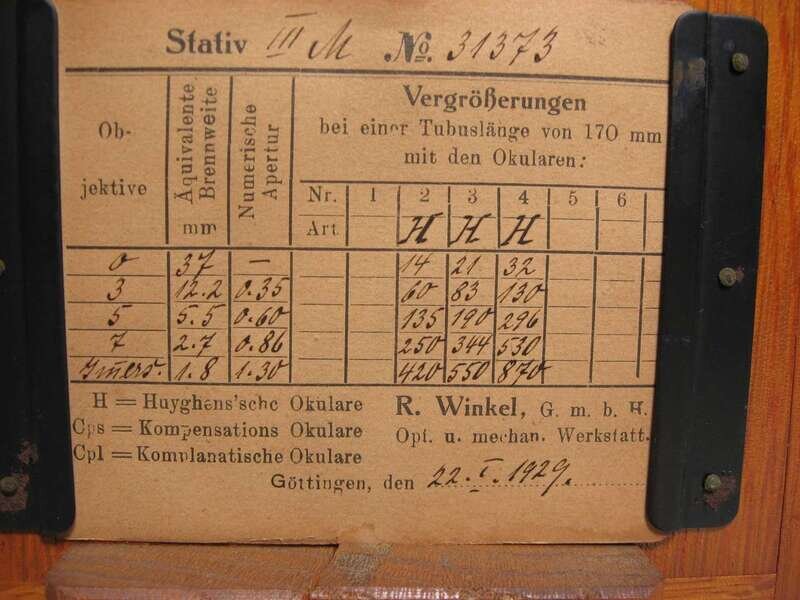 Stativ III M No. 31373
Ob-
jektive
Äquivalente
Brennweite
mm
Numerische
Apertur
Vergrößerungen
bei einer Tubuslänge von 170 mm
mit den Okularen:
Nr. 1 2 3 4 5 6
Art H H H
0 37 — 14 21 32
3 12.2 0.35 60 83 130
5 5.5 0.60 135 190 296
7 2.7 0.86 250 344 530
Imers. 1.8 1.30 420 550 870
H = Huyghens'sche Okulare
Cps = Kompensations Okulare
Cpl = Komplanatische Okulare
R. Winkel, G. m. b. H.
Opt. u. mechan. Werkstatt.
Göttingen, den 22. I. 1929.